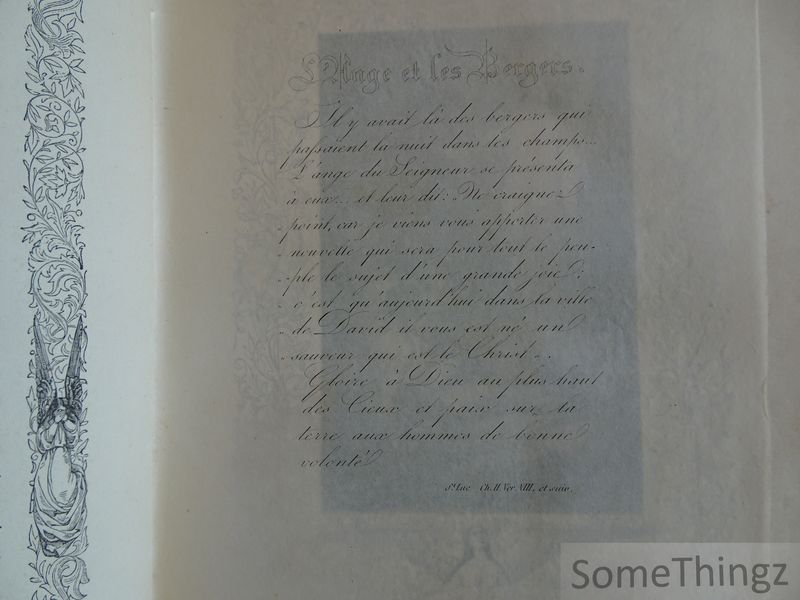 L'Ange et les Bergers.
Il y avait là des bergers qui
passaient la nuit dans les champs...
L'ange du Seigneur se présenta
à eux... et leur dit: „Ne craignez
„point, car je viens vous apporter une
„nouvelle qui sera pour tout le peu-
„ple le sujet d'une grande joie:
„c'est qu'aujourd'hui dans la ville
„de David il vous est né un
„sauveur qui est le Christ„.
Gloire à Dieu au plus haut
des Cieux et paix sur la
terre aux hommes de bonne
volonté
St. Luc Ch. II. Ver. VIII, et suiv.
SomeThingz